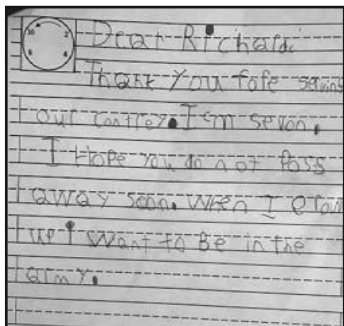 10 2
8 4
6
Dear Richard
Thank you fofe serving
our contrey. I am sevon.
I Hope you do not Pass
away soon. When I
up I want to Be in the
army.